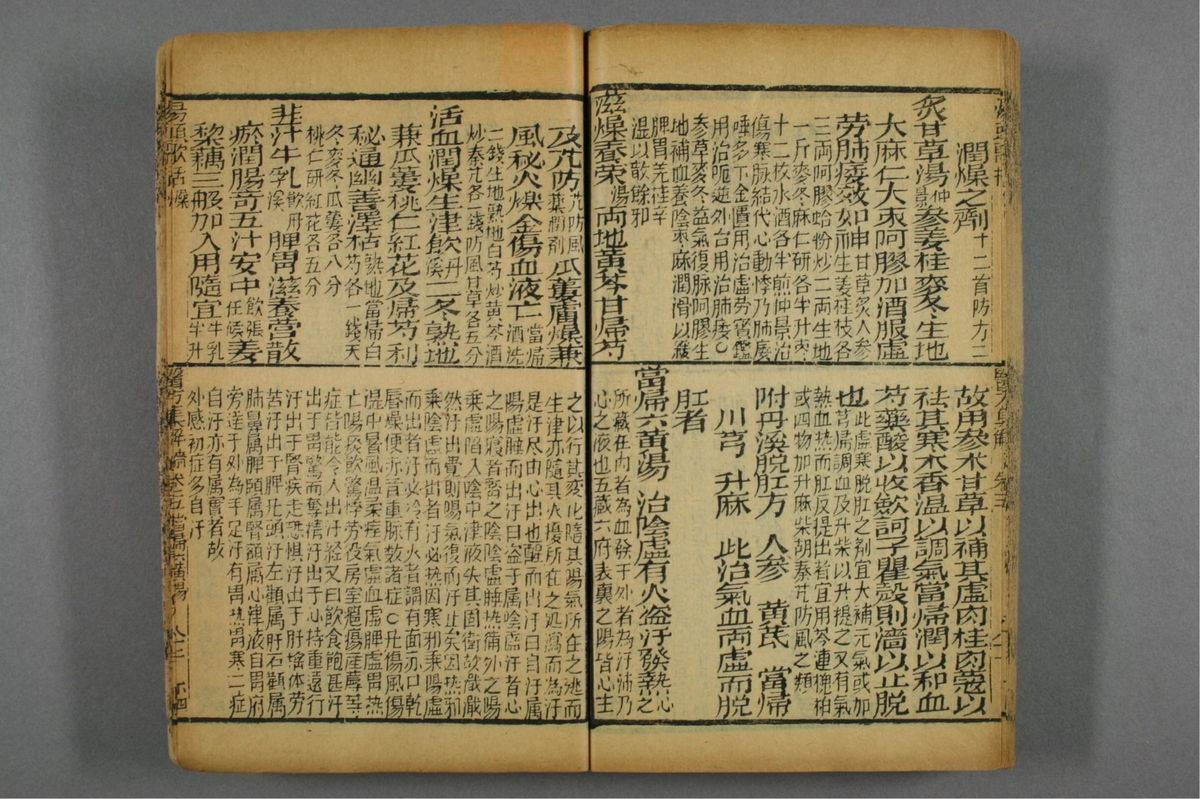 潤燥之劑十二首附方二
炙甘草湯仲景參姜桂麥冬生地
大麻仁大棗阿膠加酒服虛
勞肺痿效如神甘草炙人參
生姜桂枝各
三兩阿膠蛤粉炒二兩生地
一斤麥冬麻仁研各半升棗
十二枚水酒各半煎仲景治
傷寒脉結代心動悸及肺痿
唾多千金翼用治虛勞寶鑑
用治呃逆外台用治肺痿○
參草麥冬益氣復脉阿膠生
地補血養陰棗麻潤滑以緩
脾胃姜桂辛
温以散餘邪
滋燥養榮湯兩地黃芩甘歸芍
故用參朮甘草以補其虛肉桂肉蔻以
祛其寒木香温以調氣當歸潤以和血
芍藥酸以收歛訶子瞿殼則濇以止脫
也此虛寒脫肛之劑宜大補元氣或加
芎歸調血及升柴以升提之又有氣
熱血热而肛反提出者宜用芩連槐柏
或四物加升麻柴胡秦艽防風之類
附丹溪脫肛方 人參 黃芪 當歸
川芎 升麻 此治氣血両虛而脫
肛者
當歸六黃湯 治陰虛有火盜汗發熱心之
所藏在内者為血發于外者為汗汗乃
心之液也五藏六府表裏之陽皆心主
及艽防艽防風藥潤劑爪萎膚燥兼
風秘火燥金傷血液亡當歸酒洗
二錢生地熟地白芍炒黃芩酒
炒秦艽各一錢防風甘草各五分
活血潤燥生津飲丹溪二冬熟地
兼瓜蔞桃仁紅花及歸芍利
秘通幽善澤枯熟地當歸白
芍各一錢天
冬麥冬瓜蔞各八分
桃仁研紅花各五分
韭汁牛乳飲丹溪脾胃滋養營散
瘀潤腸奇五汁安中飲張任候姜
梨藕三般加入用隨宜牛乳半升
之以行其變化隨其陽氣所在之處而
生津亦隨其火擾所在之處瀉而為汗
是汗尽由心出也醒而出汗曰自汗属
陽虛睡而出汗曰盜汗属陰虛汗者心
之陽寢者腎之陰陰虛睡热衛外之陽
乘虛陷入陰中津液失其固衛故濈濈
然汗出覺則陽氣復而汗止矣因热邪
乘陰虛而出者汗必热因寒邪乘陽虛
而出者汗必冷有火者謂有面赤口乾
唇燥便赤音重脉数諸症○凡傷風傷
湿中暑風温柔疾氣虛血虛脾虛胃热
亡陽痰飲驚悸勞役房室癰瘍産蓐等
症皆能令人出汗經又曰飲食飽甚汗
出于胃驚而奪精汗出于心持重遠行
汗出于腎疾走恐惧汗出于肝搖体労
苦汗出于脾凡頭汗左顴属肝右顴属
肺鼻属脾頤属腎額属心津液自胃府
旁逹于外為手足汗有胃热胃寒二症
自汗亦有属實者故
外感初症多自汗